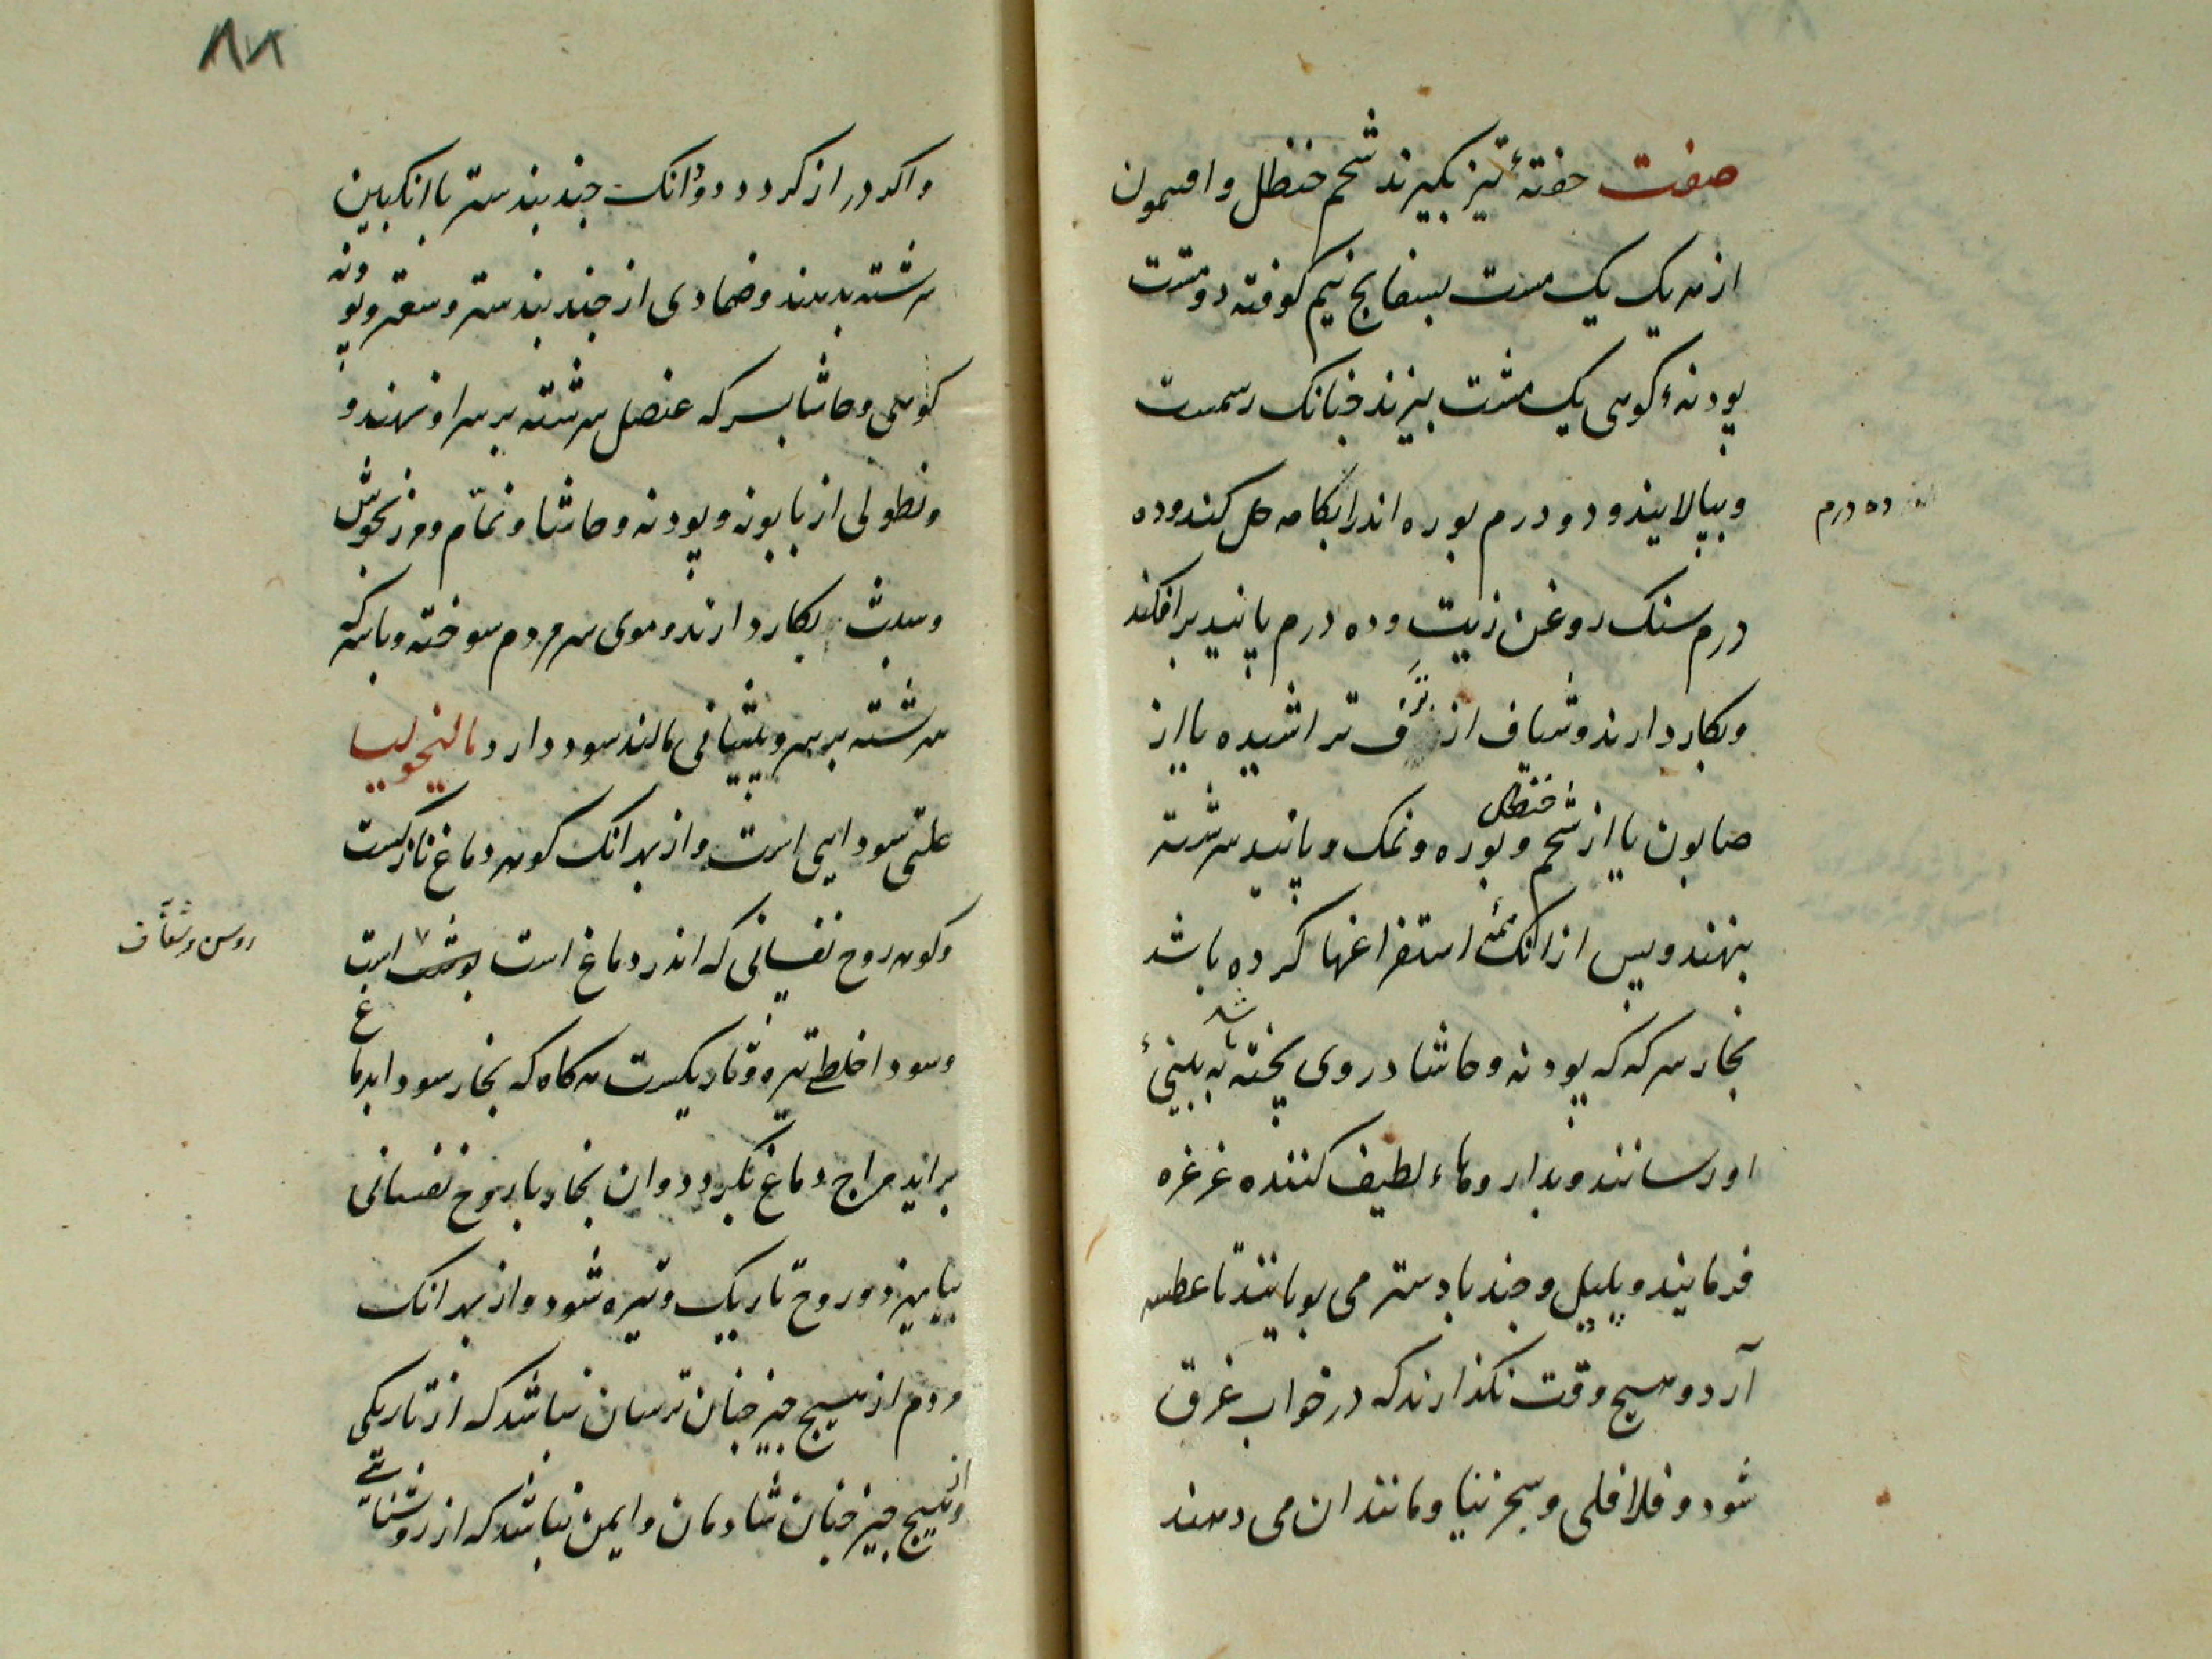 صفت حقنهٔ تیز بکیرند شحم حنظل و افتیمون
از هر یک یک مشت بسفایج نیم کوفته دو مشت
پودنهٔ کوهی یک مشت بپزند چنانک رسمست
و بپالایند و دو درم بوره اندر ابکامه حل کنند و ده
ده درم
درم سنک روغن زیت و ده درم پانید برافکند
و بکار دارند و شیاف از ترف تراشیده یا از
صابون یا از شحم حنظل و بوره و نمک و پانید سرشته
بنهند و پس از انک همهٔ استفراغها کرده باشد
بخار سرکه که پودنه و حاشا در وی پخته باشد به بینیٔ
او رسانند و بداروهاء لطیف کننده غرغره
فرمایند و پلپل و جند بادستر می بویانند تا عطسه
آرد و هیچ وقت نکذارند که در خواب غرق
شود و فلافلی و سجزنیا و مانند ان می دهند
۸۸
و اکر دراز کردد دو دانک جند بیدستر با انکبین
سرشته بدهند و ضمادی از جند بیدستر و سعتر و پودنه
کوهی و حاشا بسرکه عنصل سرشته بر سر او نهند و
و نطولی از بابونه و پودنه و حاشا و نمّام و مرزنجوش
و شبث بکار دارند و موی سر مردم سوخته و با سرکه
سرشته بر سر و پیشانی مالند سود دارد مالیخولیا
علتی سودایی است و از بهر انک کوهر دماغ نازکست
و کوهر روح نفسانی که اندر دماغ است است
روشن و شفاف
و سودا خلطی تیره و تاریکست هرکاه که بخار سودا بدماغ
براید مزاج دماغ بکردد و ان بخار با روح نفسانی
بیامیزد و روح تاریک و تیره شود و از بهر انک
مردم از هیچ چیز چنان ترسان نباشد که از تاریکی
و از هیچ چیز چنان شادمان و ایمن نباشد که از روشنایی